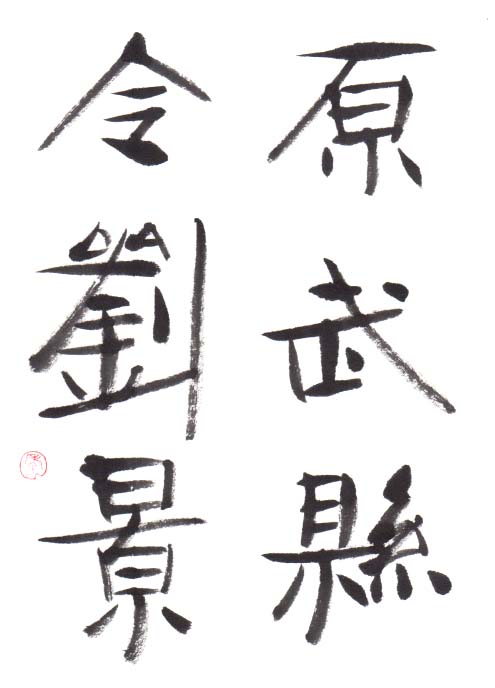 原武縣
令劉景